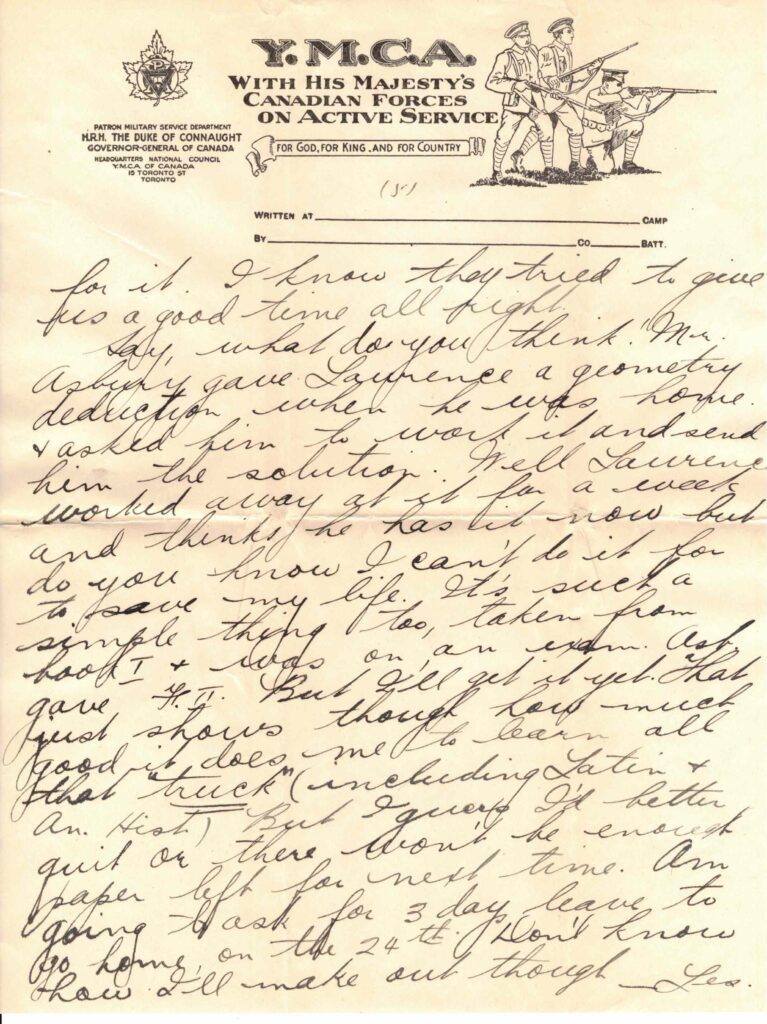 Y.M.C.A.
WITH HIS MAJESTY'S
CANADIAN FORCES
ON ACTIVE SERVICE
FOR GOD, FOR KING, AND FOR COUNTRY
PATRON MILITARY SERVICE DEPARTMENT
H.R.H. THE DUKE OF CONNAUGHT
GOVERNOR-GENERAL OF CANADA
HEADQUARTERS NATIONAL COUNCIL
Y.M.C.A. OF CANADA
15 TORONTO ST
TORONTO
(5)
WRITTEN AT CAMP
BY CO. BATT.
for it. I know they tried to give
us a good time all right.
Say, what do you think! Mr.
Asbury gave Laurence a geometry
deduction when he was home.
& asked him to work it and send
him the solution. Well Laurence
worked away at it for a week
and thinks he has it now but
do you know I can't do it for
to save my life. It's such a
simple thing too, taken from
book I & was on an exam. Asb.
gave F. II. But I'll get it yet. That
just shows though how much
good it does me to learn all
that "truck" (including Latin &
An. Hist) But I guess I'd better
quit or there won't be enough
paper left for next time. Am
going to ask for 3 day leave to
go home on the 24th. Don't know
how I'll make out though — Les.